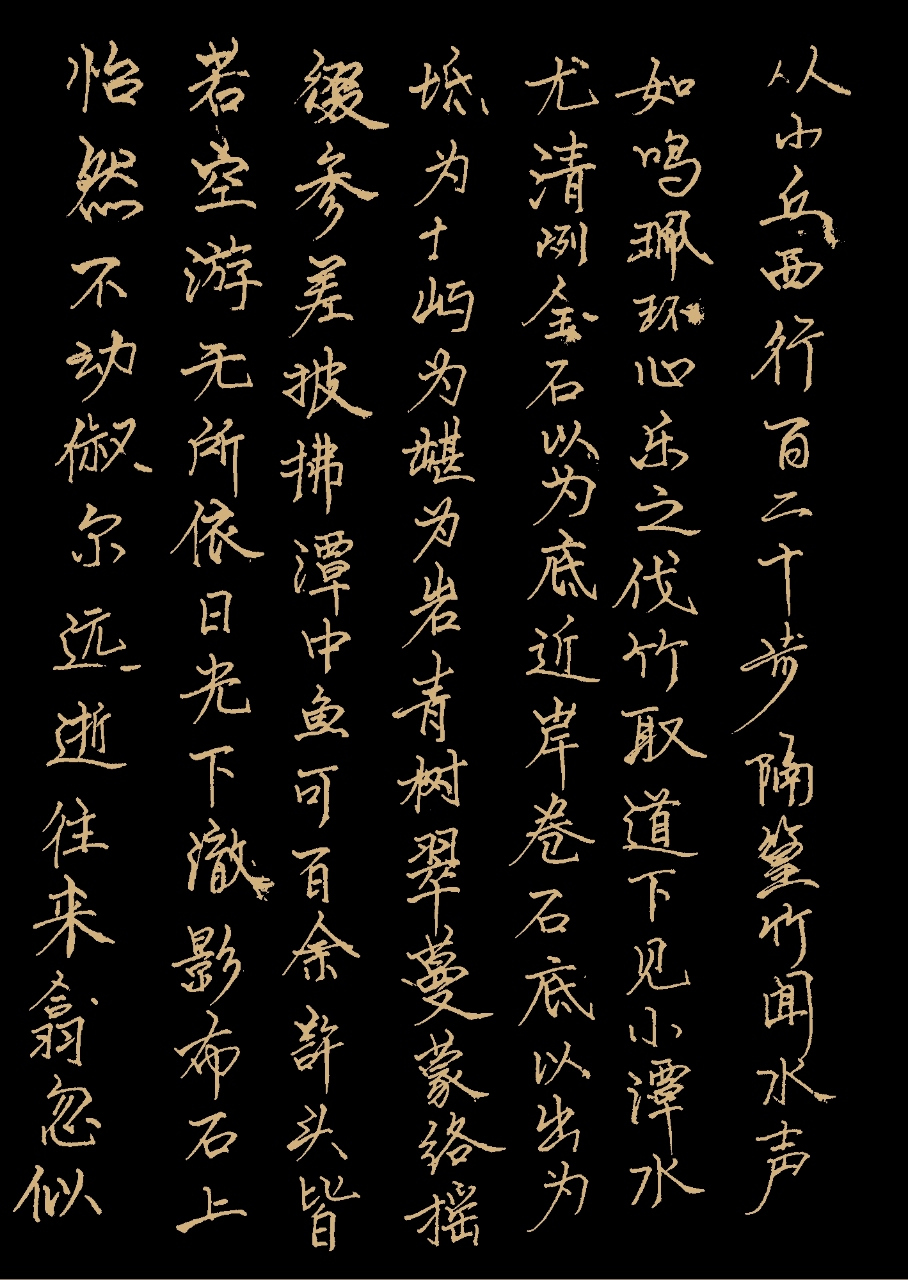 从小丘西行百二十步隔篁竹闻水声
如鸣珮环心乐之伐竹取道下见小潭水
尤清冽金石以为底近岸卷石底以出为
坻为十屿为嵁为岩青树翠蔓蒙络摇
缀参差披拂潭中鱼可百余许头皆
若空游无所依日光下澈影布石上
怡然不动俶尔远逝往来翕忽似